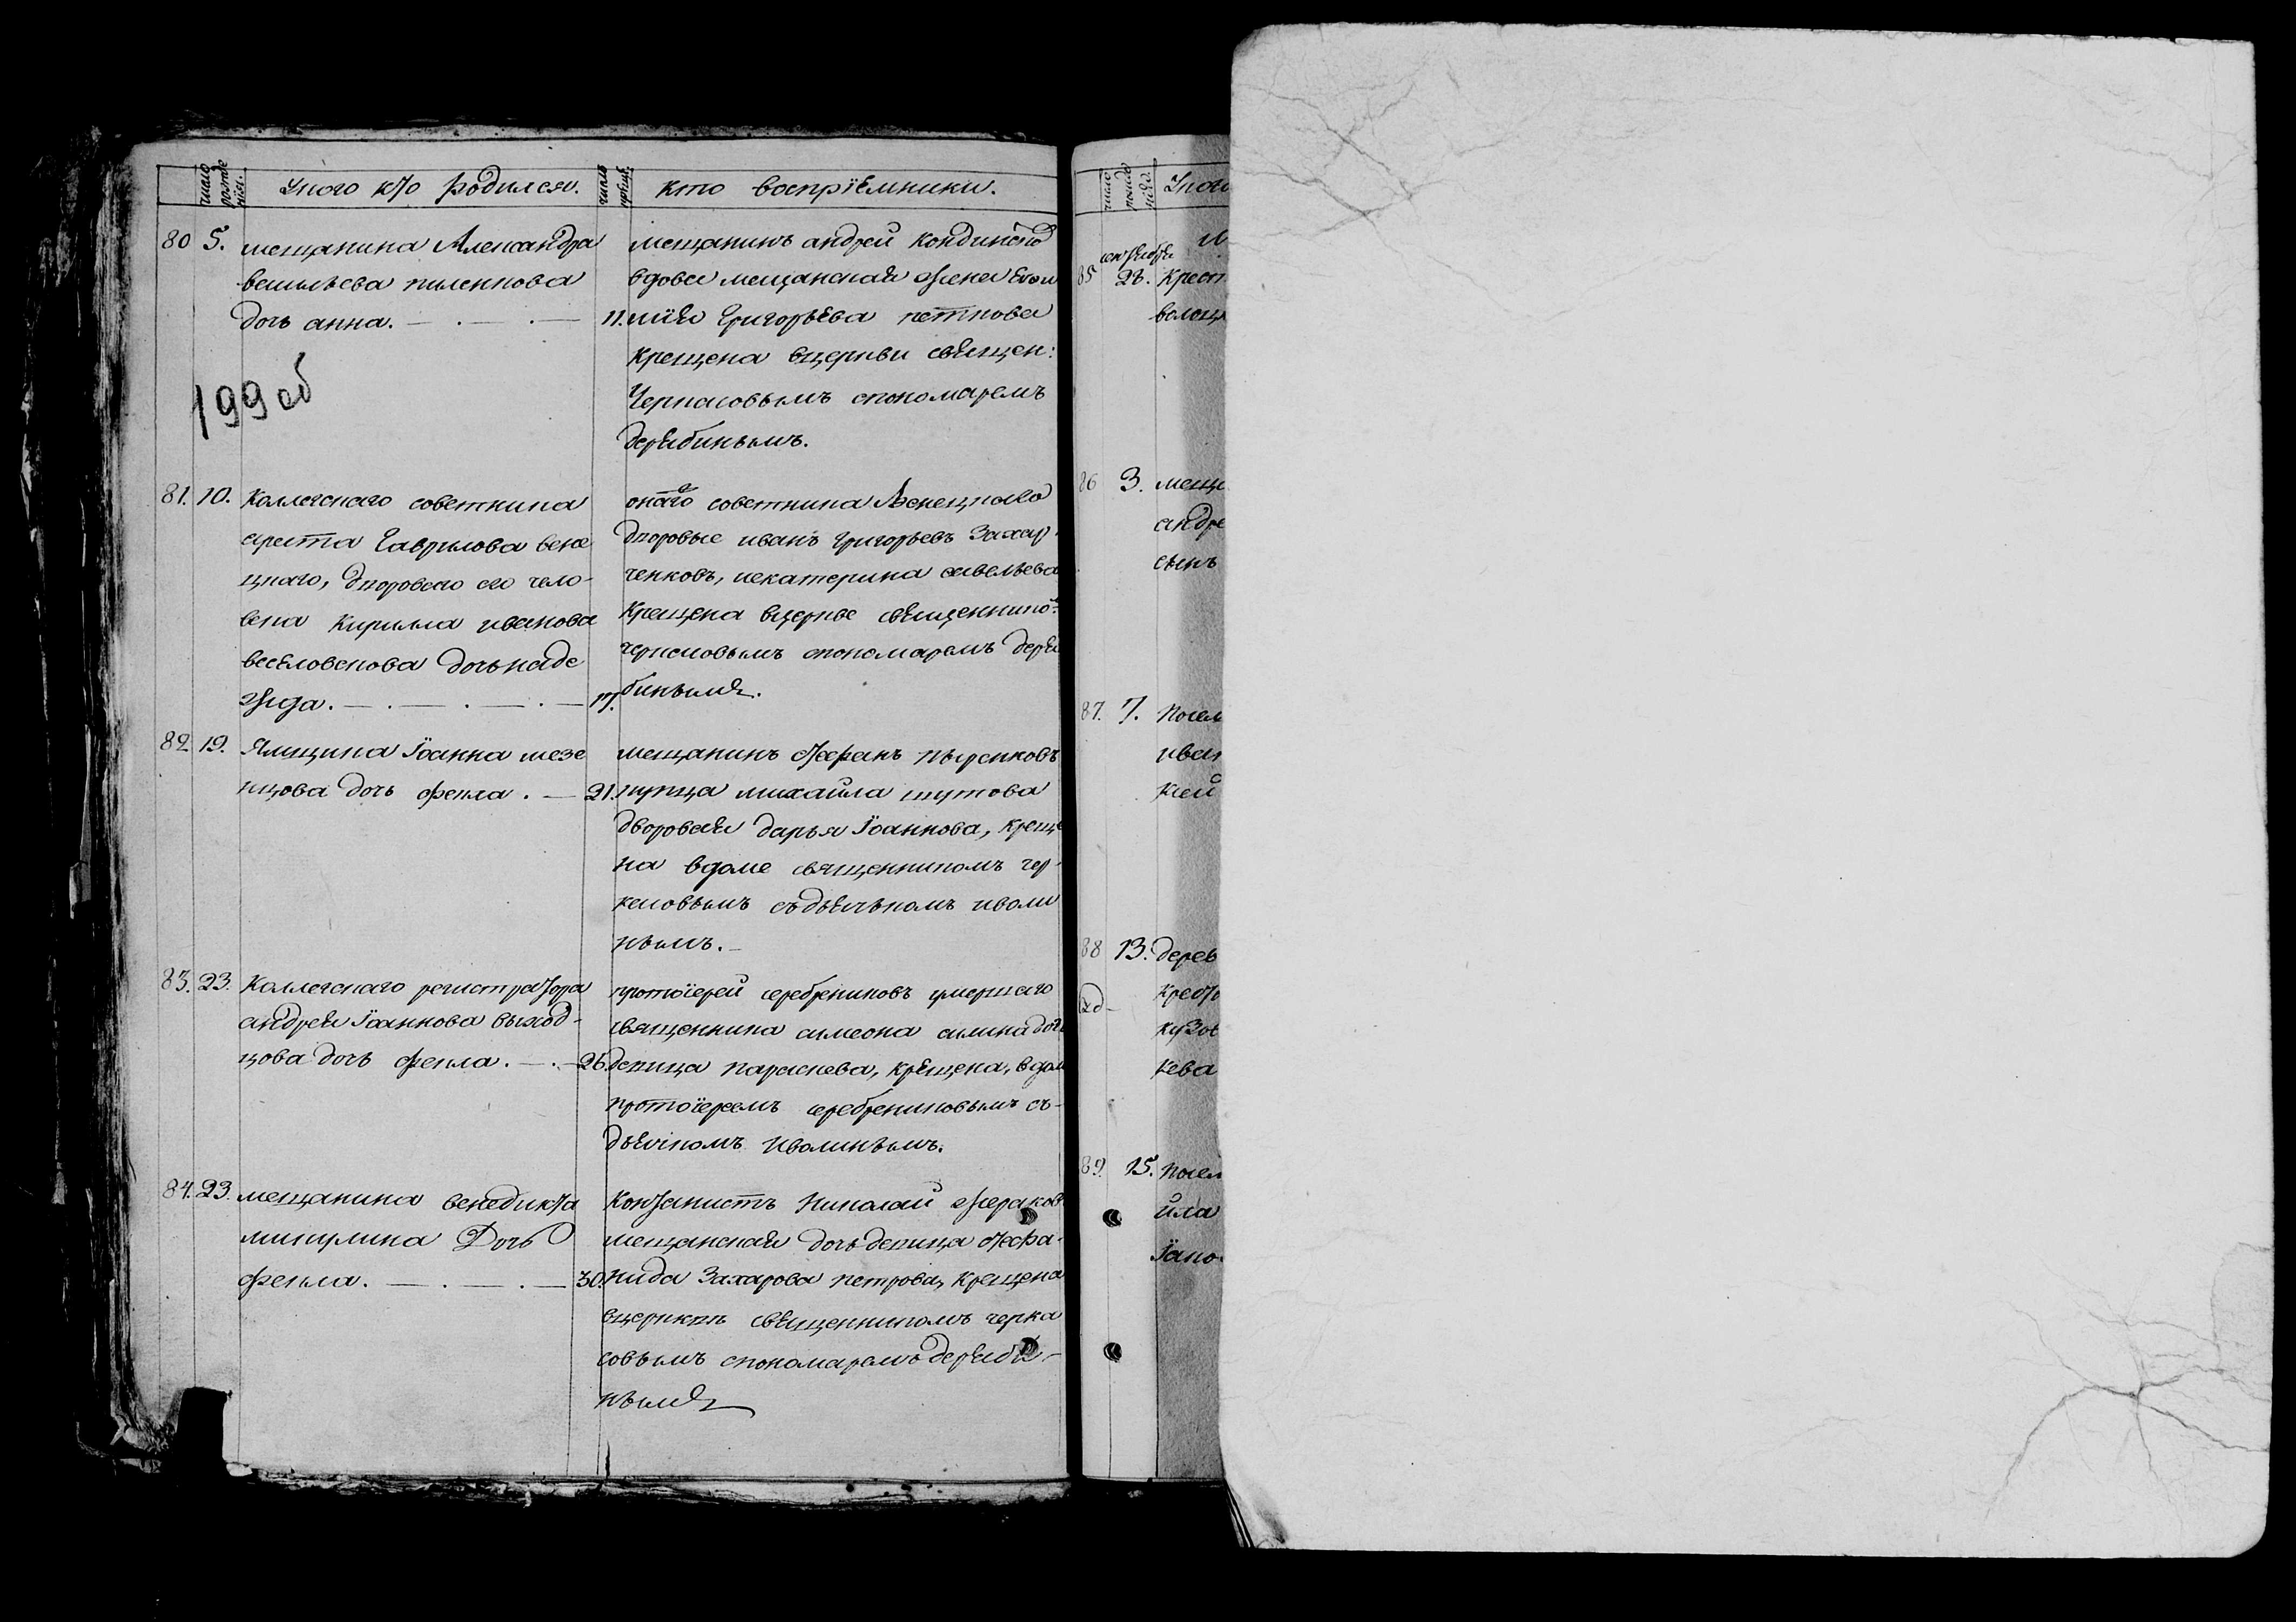 число рожденія.
У кого кто родился.
число крещ.
кто воспріемники.
80 5. мещанина Александра
васильева пиленкова
дочь анна. 11.
мещанинъ андрей
вдова мещанская жена
Григорьева
крещена вцеркви священ:
Черкасовымъ спономаремъ
дерябинымъ.
199 об
81. 10. Коллегскаго советника
Гаврилова вене
цкаго, дворового его чело-
века Кирилла иванова
дочь наде
жда. 17.
онаго советника Венецкаго
дворовые иванъ григорьевъ Захар-
ченковъ, иекатерина савельева
крещена вцеркве священнико:
черкасовымъ спономаремъ деря
бинымъ.
82. 19. Ямщика Їоанна мезе
нцова дочь фекла. 21.
мещанинъ стефанъ
купца михайла шутова
дворовая дарья Їоаннова, креще
на вдоме священникомъ чер-
касовымъ съдьячкомъ иволи
нымъ.
83. 23. Коллегскаго регистратора
андрея Їоаннова выход-
цова дочь фекла. 26.
протоїерей серебрениковъ умершаго
священника симеона силина дочь
девица параскева, крещена, вдом
протоїереемъ серебрениковымъ съ-
дьячкомъ Иволинымъ.
84. 23. мещанина венедикта
микулина Дочь
фекла. 30.
Контористъ Николай
мещанская дочь девица стефа-
нида Захарова петрова, крещена
вцерквѣ священникомъ черка
совымъ спономаремъ деряби-
нымъ
число рожденія.
У кого
сентября
85 28. крест
волощ
86 3. меща
андре
сынъ
87. 7. посел
иван
кей
88 13. дерев
кресто
кузов
кева
89. 15. посел
йла
Їано